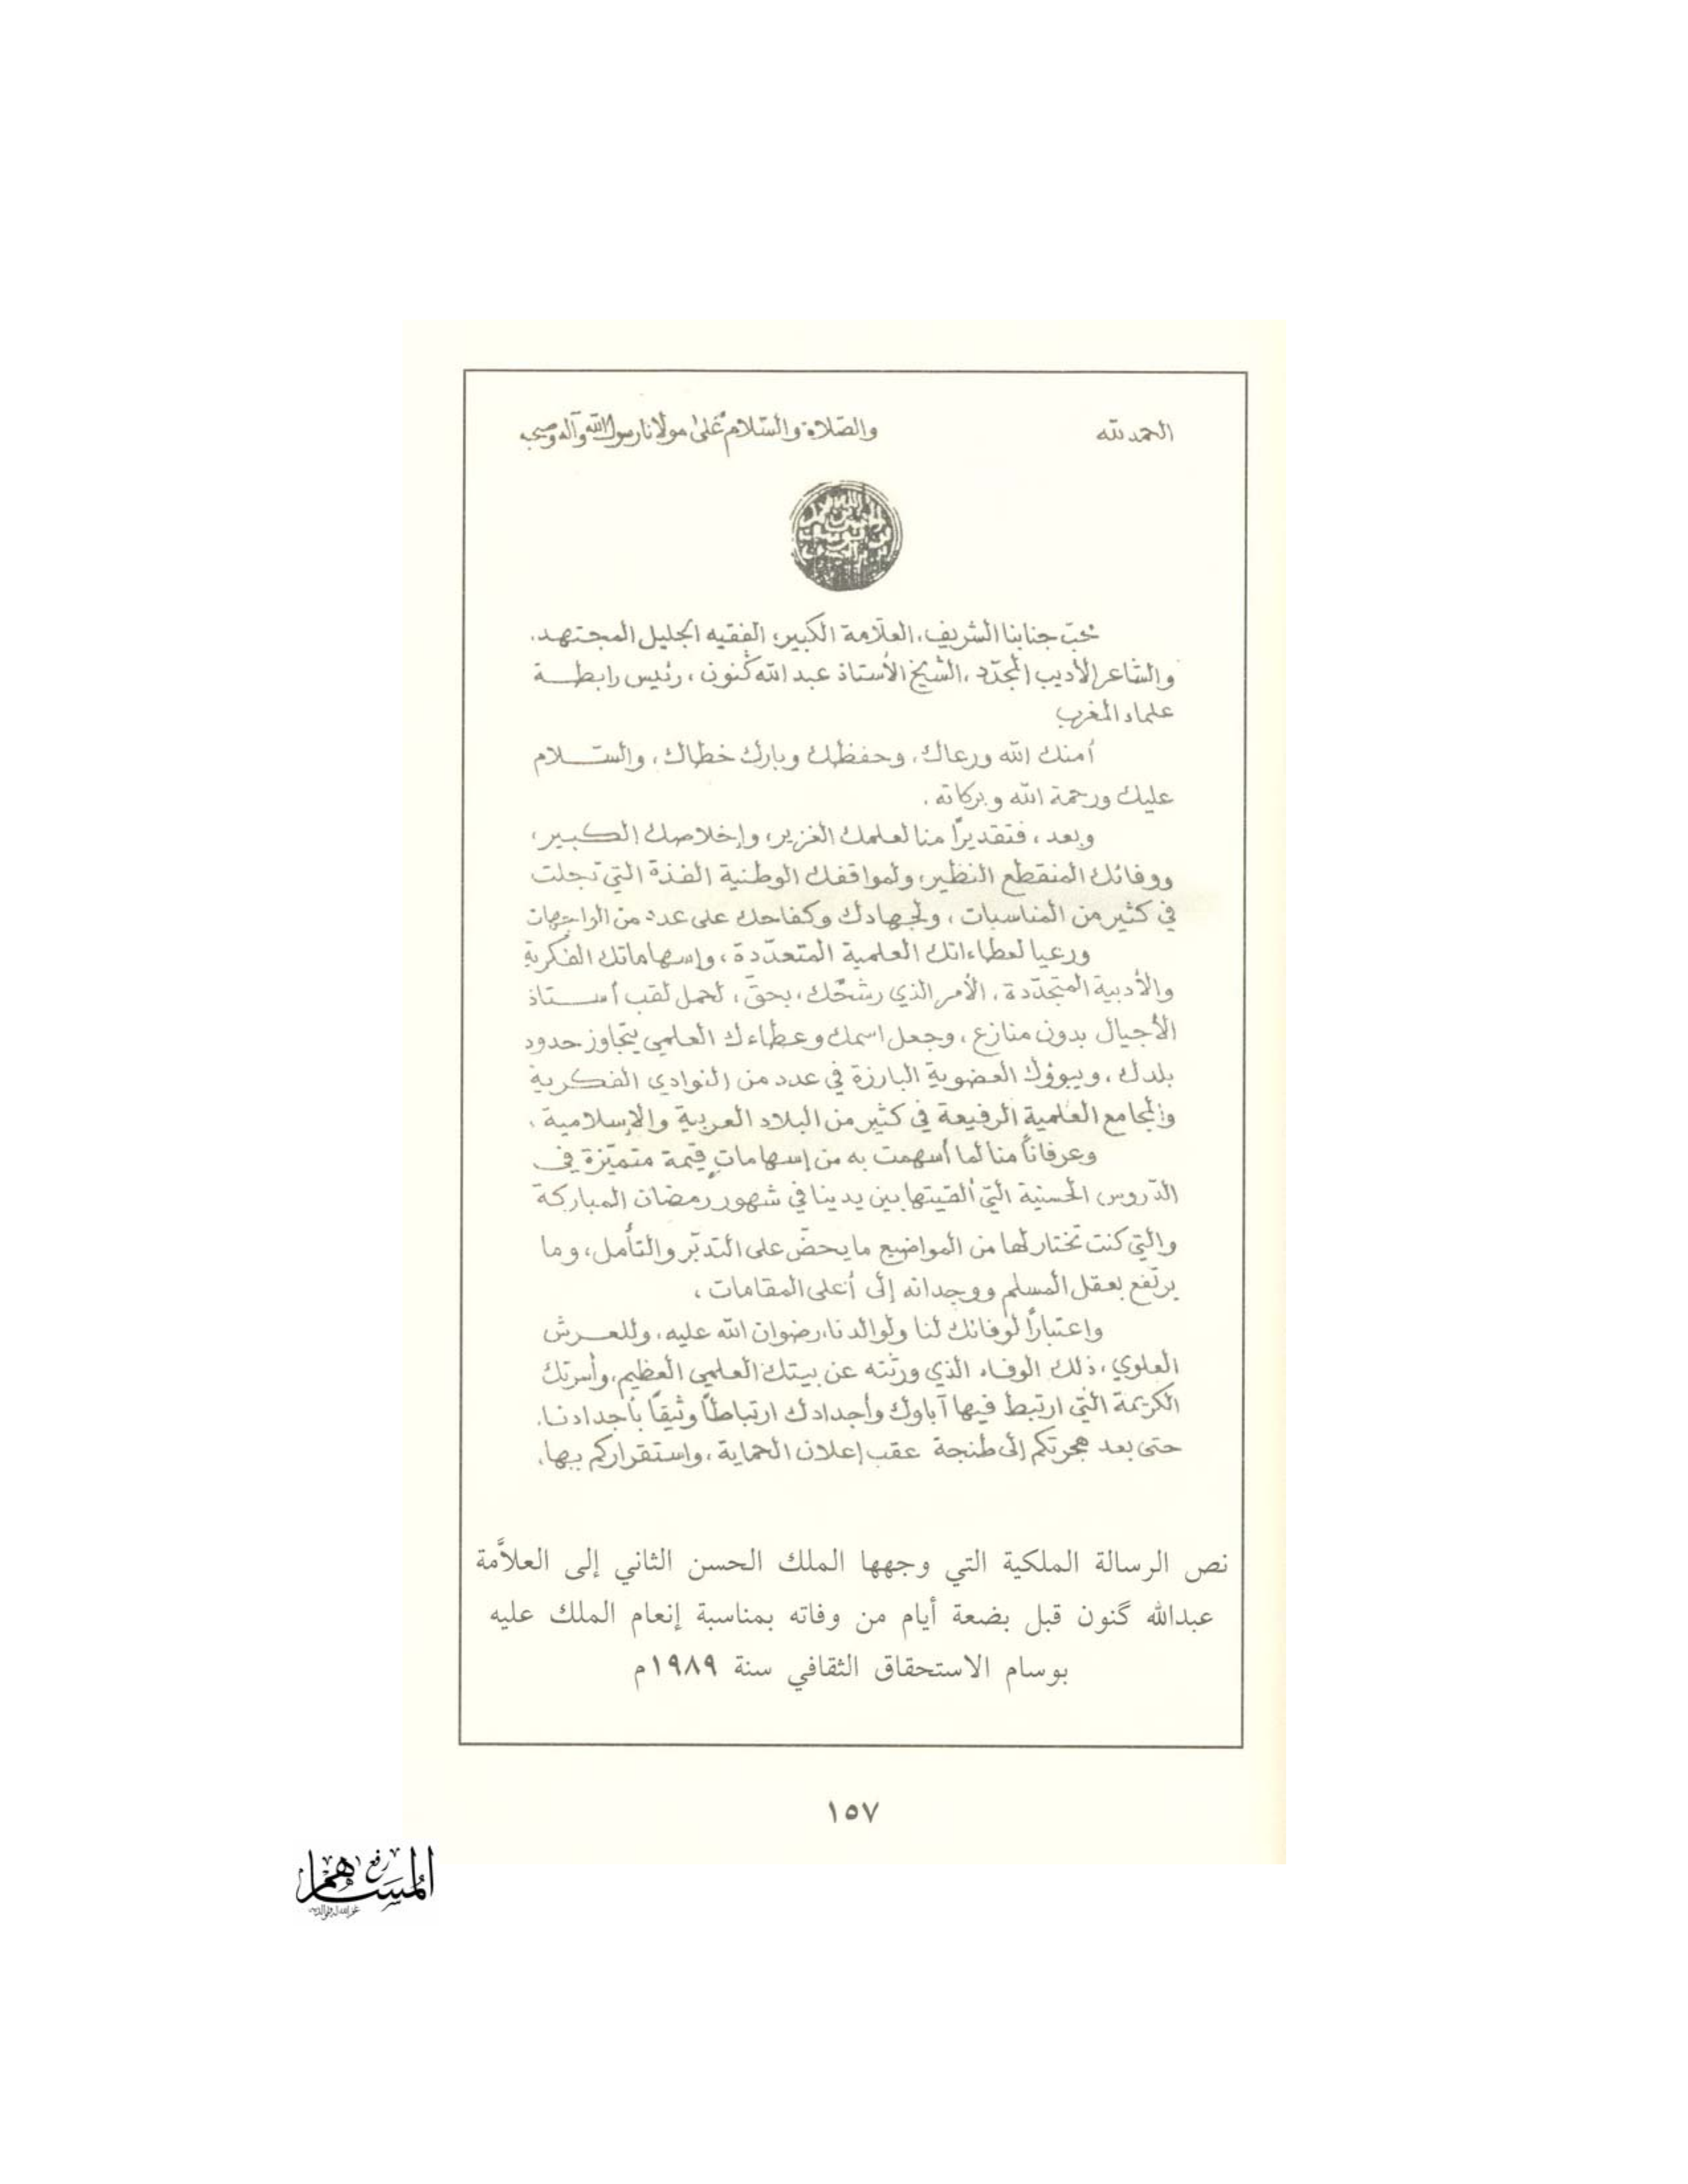 الحمد لله
والصّلاة والسّلام على مولانا رسول الله وآله وصحبه
محبّ جنابنا الشريف، العلّامة الكبير، الفقيه الجليل المجتهد،
والشاعر الأديب المجدّد، الشيخ الأستاذ عبد الله گنون، رئيس رابطة
علماء المغرب
أمنك الله ورعاك، وحفظك وبارك خطاك، والسّلام
عليك ورحمة الله وبركاته.
وبعد، فتقديرًا منا لعلمك الغزير، وإخلاصك الكبير،
ووفائك المنقطع النظير، ولمواقفك الوطنية الفذة التي تجلت
في كثير من المناسبات، ولجهادك وكفاحك على عدد من الواجهات
ورعيا لعطاءاتك العلمية المتعدّدة، وإسهاماتك الفكرية
والأدبية المتجدّدة، الأمر الذي رشّحك، بحقّ، لحمل لقب أستاذ
الأجيال بدون منازع، وجعل اسمك وعطاءك العلمي يتجاوز حدود
بلدك، ويبوؤك العضوية البارزة في عدد من النوادي الفكرية
والمجامع العلمية الرفيعة في كثير من البلاد العربية والإسلامية،
وعرفانًا منا لما أسهمت به من إسهاماتٍ قيّمة متميّزة في
الدّروس الحسنية التي ألقيتها بين يدينا في شهور رمضان المباركة
والتي كنت تختار لها من المواضيع ما يحضّ على التدبّر والتأمل، وما
يرتفع بعقل المسلم ووجدانه إلى أعلى المقامات،
واعتبارًا لوفائك لنا ولوالدنا، رضوان الله عليه، وللعرش
العلوي، ذلك الوفاء الذي ورثته عن بيتك العلمي العظيم، وأسرتك
الكريمة التي ارتبط فيها آباؤك وأجدادك ارتباطًا وثيقًا بأجدادنا،
حتى بعد هجرتكم إلى طنجة عقب إعلان الحماية، واستقراركم بها،
نص الرسالة الملكية التي وجهها الملك الحسن الثاني إلى العلاَّمة
عبدالله گنون قبل بضعة أيام من وفاته بمناسبة إنعام الملك عليه
بوسام الاستحقاق الثقافي سنة ١٩٨٩م
١٥٧